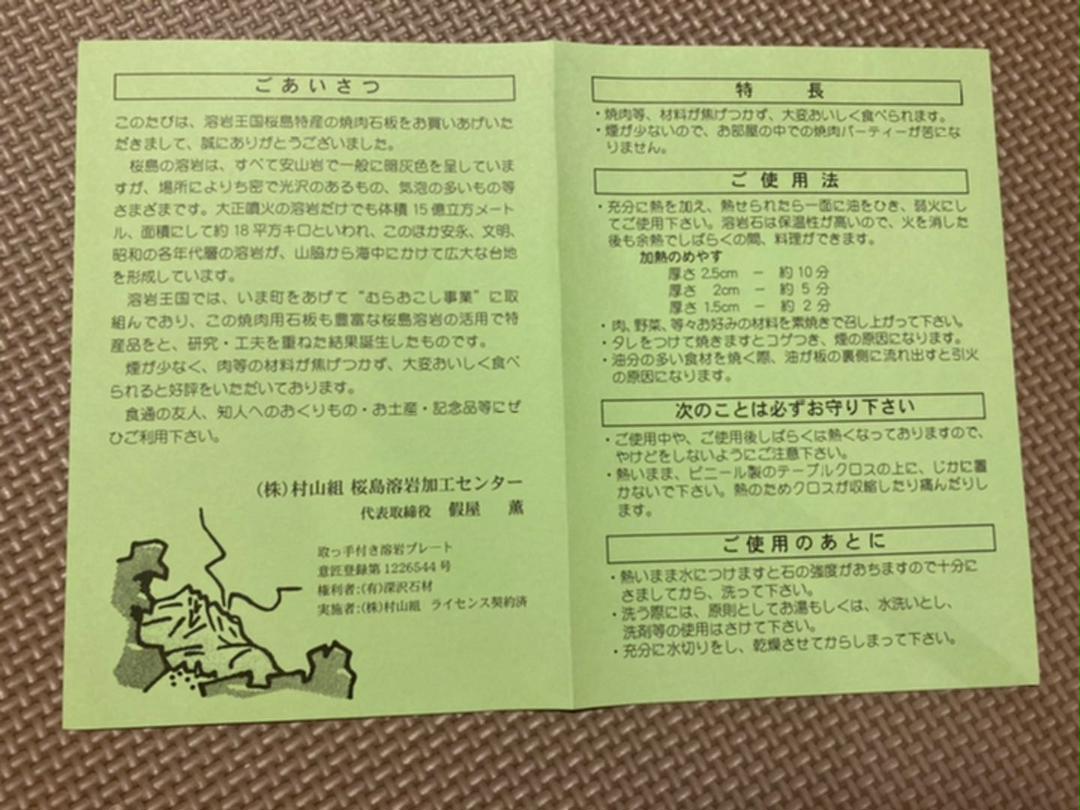 ごあいさつ
このたびは、溶岩王国桜島特産の焼肉石板をお買いあげいた
だきまして、誠にありがとうございました。
桜島の溶岩は、すべて安山岩で一般に暗灰色を呈していま
すが、場所によりち密で光沢のあるもの、気泡の多いもの等
さまざまです。大正噴火の溶岩だけでも体積 15 億立方メート
ル、面積にして約 18 平方キロといわれ、このほか安永、文明、
昭和の各年代層の溶岩が、山脇から海中にかけて広大な台地
を形成しています。
溶岩王国では、いま町をあげて“むらおこし事業”に取
組んでおり、この焼肉用石板も豊富な桜島溶岩の活用で特
産品をと、研究・工夫を重ねた結果誕生したものです。
煙が少なく、肉等の材料が焦げつかず、大変おいしく食べ
られると好評をいただいております。
食通の友人、知人へのおくりもの・お土産・記念品等にぜ
ひご利用下さい。
(株)村山組 桜島溶岩加工センター
代表取締役 假屋 薫
取っ手付き溶岩プレート
意匠登録第1226544号
権利者:(有)深沢石材
実施者:(株)村山組 ライセンス契約済
特 長
・焼肉等、材料が焦げつかず、大変おいしく食べられます。
・煙が少ないので、お部屋の中での焼肉パーティーが苦にな
りません。
ご使用法
・充分に熱を加え、熱せられたら一面に油をひき、弱火にし
てご使用下さい。溶岩石は保温性が高いので、火を消した
後も余熱でしばらくの間、料理ができます。
加熱のめやす
厚さ 2.5cm － 約 10 分
厚さ 2cm － 約 5 分
厚さ 1.5cm － 約 2 分
・肉、野菜、等々お好みの材料を素焼きで召し上がって下さい。
・タレをつけて焼きますとコゲつき、煙の原因になります。
・油分の多い食材を焼く際、油が板の裏側に流れ出すと引火
の原因になります。
次のことは必ずお守り下さい
・ご使用中や、ご使用後しばらくは熱くなっておりますので、
やけどをしないようにご注意下さい。
・熱いまま、ビニール製のテーブルクロスの上に、じかに置
かないで下さい。熱のためクロスが収縮したり痛んだりし
ます。
ご使用のあとに
・熱いまま水につけますと石の強度がおちますので十分に
さましてから、洗って下さい。
・洗う際には、原則としてお湯もしくは、水洗いとし、
洗剤等の使用はさけて下さい。
・充分に水切りをし、乾燥させてからしまって下さい。